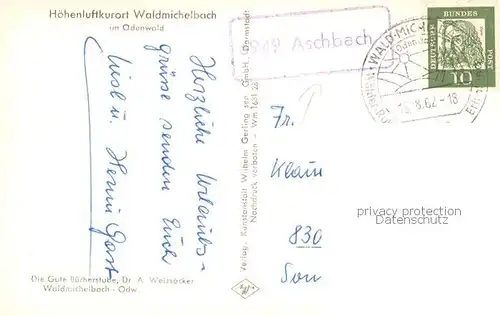 Höhenluftkurort Waldmichelbach
im Odenwald
Herzliche Urlaubs-
grüsse senden Euch
Liesl u. Henni Gast
Die Gute Bücherstube, Dr. A. Weizsäcker
Waldmichelbach - Odw.
Verlag: Kunstanstalt Wilhelm Gerling sen. GmbH., Darmstadt
Nachdruck verboten - Wm 1631 28
Aschbach
WALD-MICH
Oden
18.8.62-18
DEUTSCHE
BUNDES
POST
10
Fr.
Klaus
830
Son
privacy protection
watermark